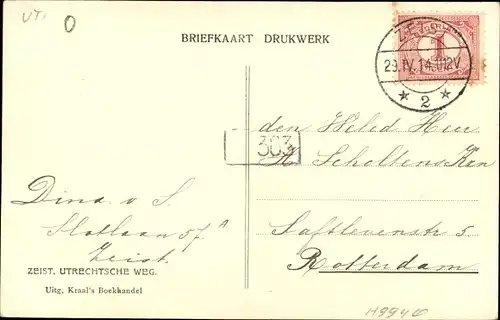 UT.
0
BRIEFKAART DRUKWERK
29.IV.14. 12V
* 2 *
1
den Weled Heer
303
Scholtens Kzn
Dina v. S.
Slotlaan 57 A
Saftlevenstr 5
Zeist.
Rotterdam
ZEIST. UTRECHTSCHE WEG.
Uitg. Kraal's Boekhandel